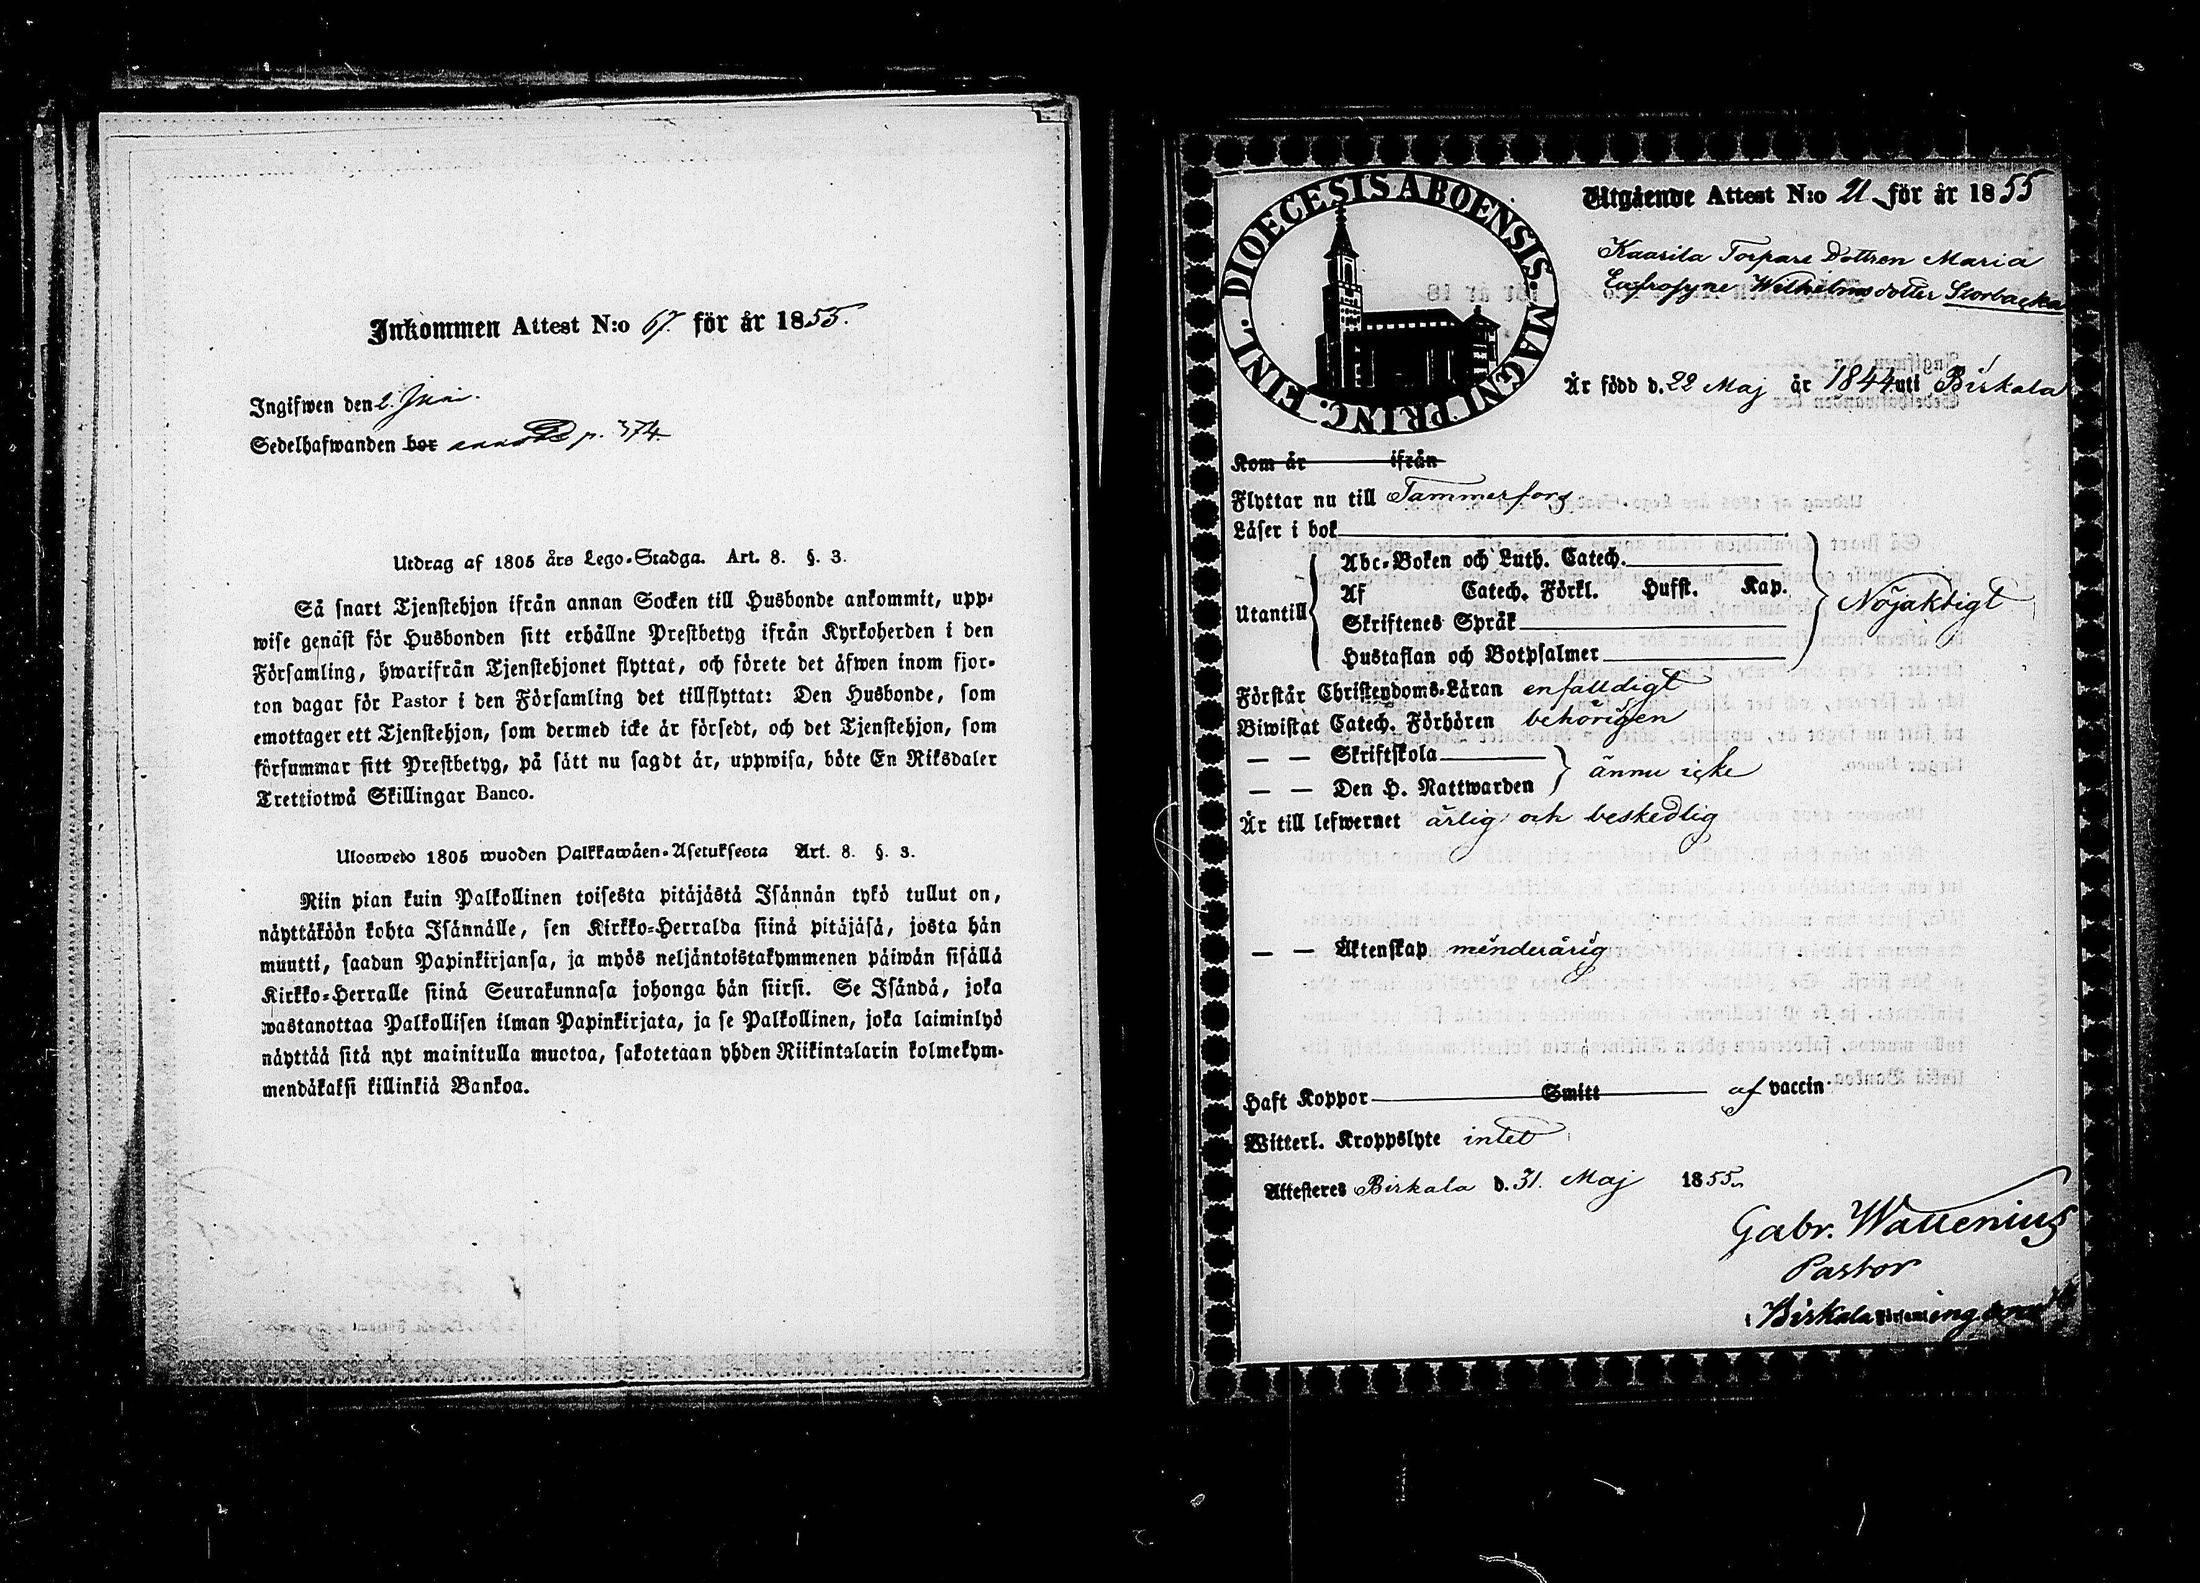 Inkommen Attest N:o 67. för år 1855.
Ingifwen den 2. Juni.
Sedelhafwanden bor p. 374
Utdrag af 1805 års Lego-Stadga. Art. 8. §. 3.
Så snart Tjenstehjon ifrån annan Socken till Husbonde ankommit, upp-
wise genast för Husbonden sitt erhållne Prestbetyg ifrån Kyrkoherden i den
Församling, hwarifrån Tjenstehjonet flyttat, och förete det äfwen inom fjor-
ton dagar för Pastor i den Församling det tillflyttat: Den Husbonde, som
emottager ett Tjenstehjon, som dermed icke är försedt, och det Tjenstehjon, som
försummar sitt Prestbetyg, på sätt nu sagdt är, uppwisa, böte En Riksdaler
Trettiotwå Skillingar Banco.
Uloswedo 1805 wuoden Palkkawäen-Asetuksesta Art. 8. §. 3.
Niin pian kuin Palkollinen toisesta pitäjästä Isännän tykö tullut on,
näyttäköön kohta Isännälle, sen Kirkko-Herralda siinä pitäjäsä, josta hän
muutti, saadun Papinkirjansa, ja myös neljäntoistakymmenen päiwän sisällä
Kirkko-Herralle siinä Seurakunnasa johonga hän siirsi. Se Isändä, joka
wastanottaa Palkollisen ilman Papinkirjata, ja se Palkollinen, joka laiminlyö
näyttää sitä nyt mainitulla muotoa, sakotetaan yhden Riikintalarin kolmekym-
mendäkaksi killinkiä Bankoa.
DIOECESIS ABOENSIS. MAGNI PRINC. FINL.
Utgående Attest N:o 21 för år 1855
Kaarila Torpare Dottren Maria
Eufrosyne Wilhelmsdotter Storbacka
Är född d. 22 Maj år 1844 uti Birkala
Kom år ifrån
Flyttar nu till Tammerfors
Läser i bok
Utantill
Abc-Boken och Luth. Catech.
Af Catech. Förkl. Hufst. Kap.
Skriftenes Språk
Hustaflan och Botpsalmer
Nöjaktigt
Förstår Christendoms-Läran enfalldigt
Biwistat Catech. Förhören behörigen
— — Skriftskola
— — Den H. Nattwarden
ännu icke
Är till lefwernet ärlig och beskedlig
— — Äktenskap minderårig
Haft Koppor Smitt af vaccin.
Witterl. Kroppslyte intet
Attesteres Birkala d. 31. Maj 1855.
Gabr. Wallenius
Pastor
i Birkala